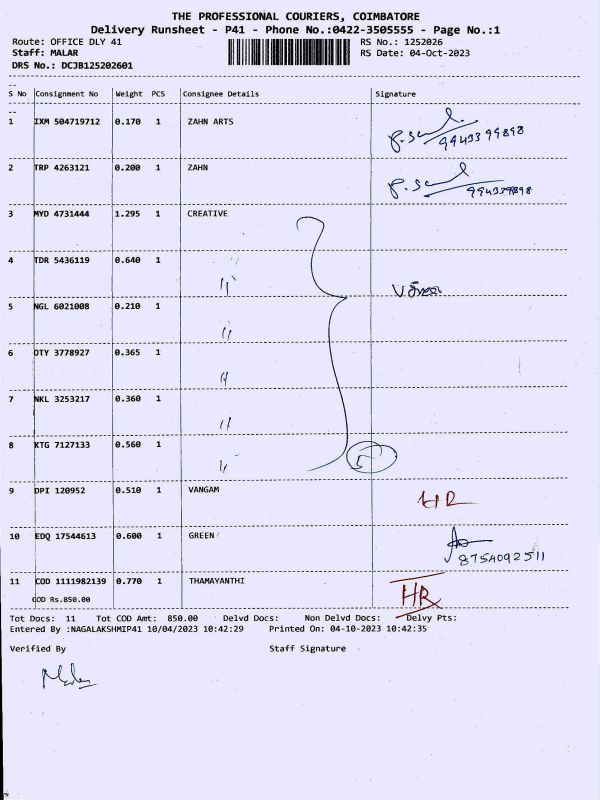 THE PROFESSIONAL COURIERS, COIMBATORE
Delivery Runsheet - P41 - Phone No.:0422-3505555 - Page No.:1
Route: OFFICE DLY 41 RS No.: 1252026
Staff: MALAR RS Date: 04-Oct-2023
DRS No.: DCJB125202601
S No Consignment No Weight PCS Consignee Details Signature
1 IXM 504719712 0.170 1 ZAHN ARTS
9943399898
2 TRP 4263121 0.200 1 ZAHN
994339898
3 MYD 4731444 1.295 1 CREATIVE
4 TDR 5436119 0.640 1
"
5 NGL 6021008 0.210 1
"
6 DTY 3778927 0.365 1
"
7 NKL 3253217 0.360 1
"
8 KTG 7127133 0.560 1
"
9 DPI 120952 0.510 1 VANGAM HR
10 EDQ 17544613 0.600 1 GREEN
8754092511
11 COD 1111982139 0.770 1 THAMAYANTHI HR
COD Rs.850.00
Tot Docs: 11 Tot COD Amt: 850.00 Delvd Docs: Non Delvd Docs: Delvy Pts:
Entered By :NAGALAKSHMIP41 10/04/2023 10:42:29 Printed On: 04-10-2023 10:42:35
Verified By Staff Signature